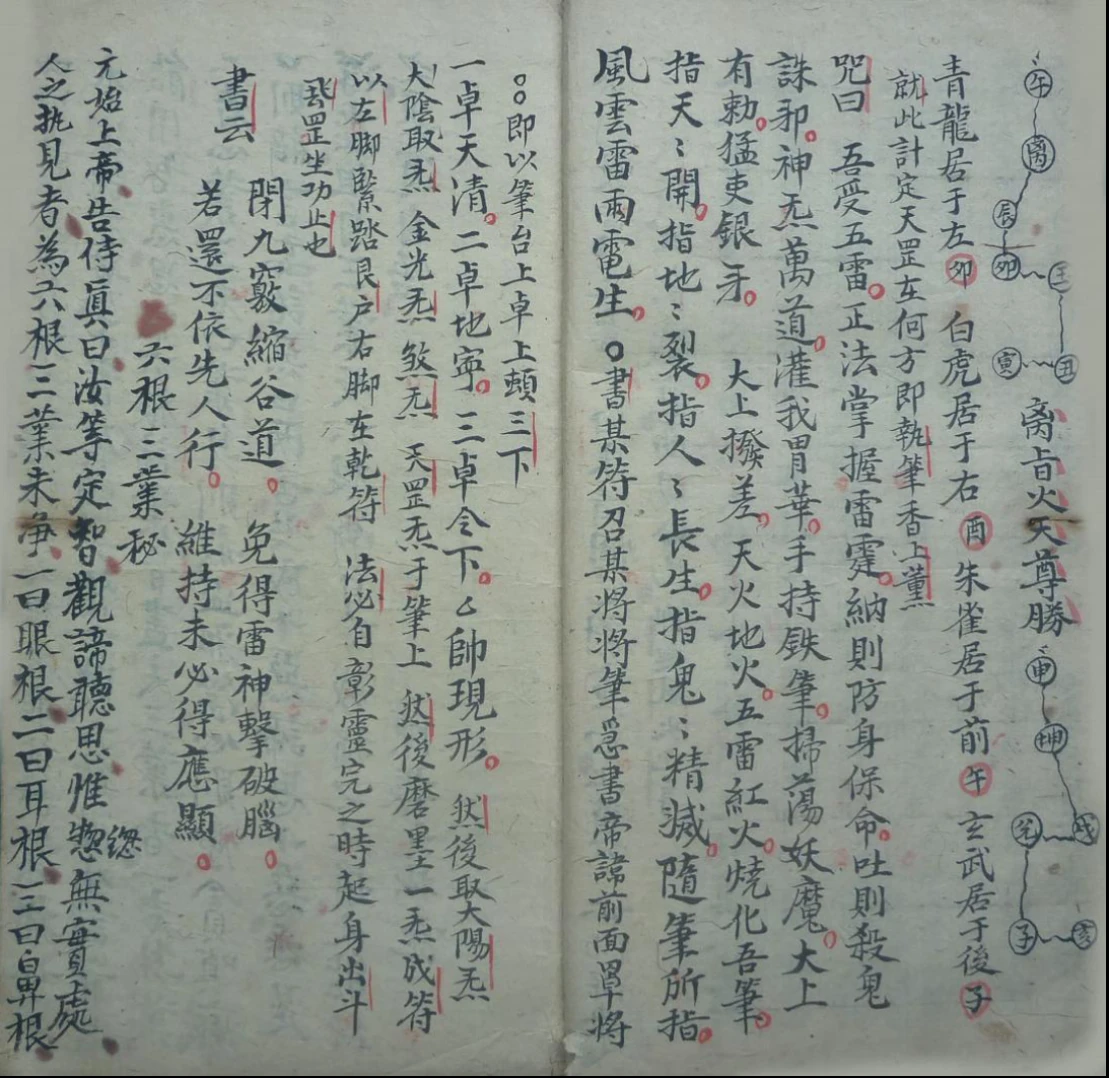 午 离 辰 卯 壬 丑 寅 离旨火天尊勝 申 坤 戌 兑 子 亥
青龍居于左卯 白虎居于右酉 朱雀居于前午 玄武居于後子
就此計定天罡在何方即執筆香上薰
咒曰 吾受五雷正法掌握雷霆納則防身保命吐則殺鬼
誅邪神炁萬道灌我胃華手持鉄筆掃蕩妖魔大上
有勅猛吏銀牙 大上撥差天火地火五雷紅火燒化吾筆
指天〻開指地〻裂指人〻長生指鬼〻精滅隨筆所指
風雲雷雨電生○書某符召某將將筆急書帝諱前面罩將
○○即以筆台上卓上頓三下
一卓天清二卓地寧三卓令下 帥現形 然後取大陽炁
大陰取炁 金光炁 煞炁 天罡炁于筆上 然後磨墨一炁成符
以左脚緊踏艮户右脚在乾符 法必自彰靈完之時起身出斗
罡坐功止也
書云 閉九竅縮谷道 免得雷神擊破腦
若還不依先人行 維持未必得應顯
六根三業秘
元始上帝告侍眞曰汝等定智觀諦聽思惟惣總無實處
人之执見者為六根三業未争一曰眼根二曰耳根三曰鼻根